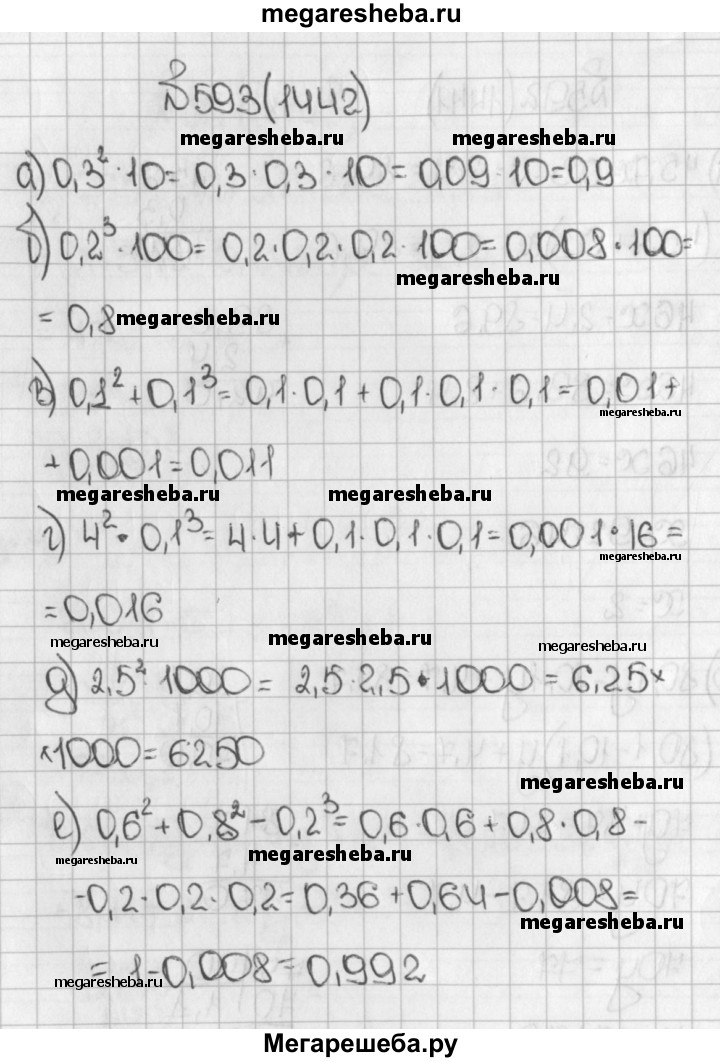 megaresheba.ru
№593(1442)
megaresheba.ru megaresheba.ru
а) 0,3²·10= 0,3·0,3·10= 0,09·10=0,9
б) 0,2³·100= 0,2·0,2·0,2·100=0,008·100=
megaresheba.ru
= 0,8 megaresheba.ru
в) 0,1²+0,1³= 0,1·0,1+0,1·0,1·0,1=0,01+
megaresheba.ru
+0,001=0,011
megaresheba.ru megaresheba.ru
г) 4²·0,1³= 4·4+0,1·0,1·0,1=0,001·16=
megaresheba.ru
=0,016
megaresheba.ru megaresheba.ru megaresheba.ru
д) 2,5²·1000= 2,5·2,5·1000=6,25×
×1000=6250
megaresheba.ru
е) 0,6²+0,8²-0,2³=0,6·0,6+0,8·0,8-
megaresheba.ru megaresheba.ru
-0,2·0,2·0,2=0,36+0,64-0,008=
megaresheba.ru
=1-0,008=0,992
megaresheba.ru
Мегарешеба.ру